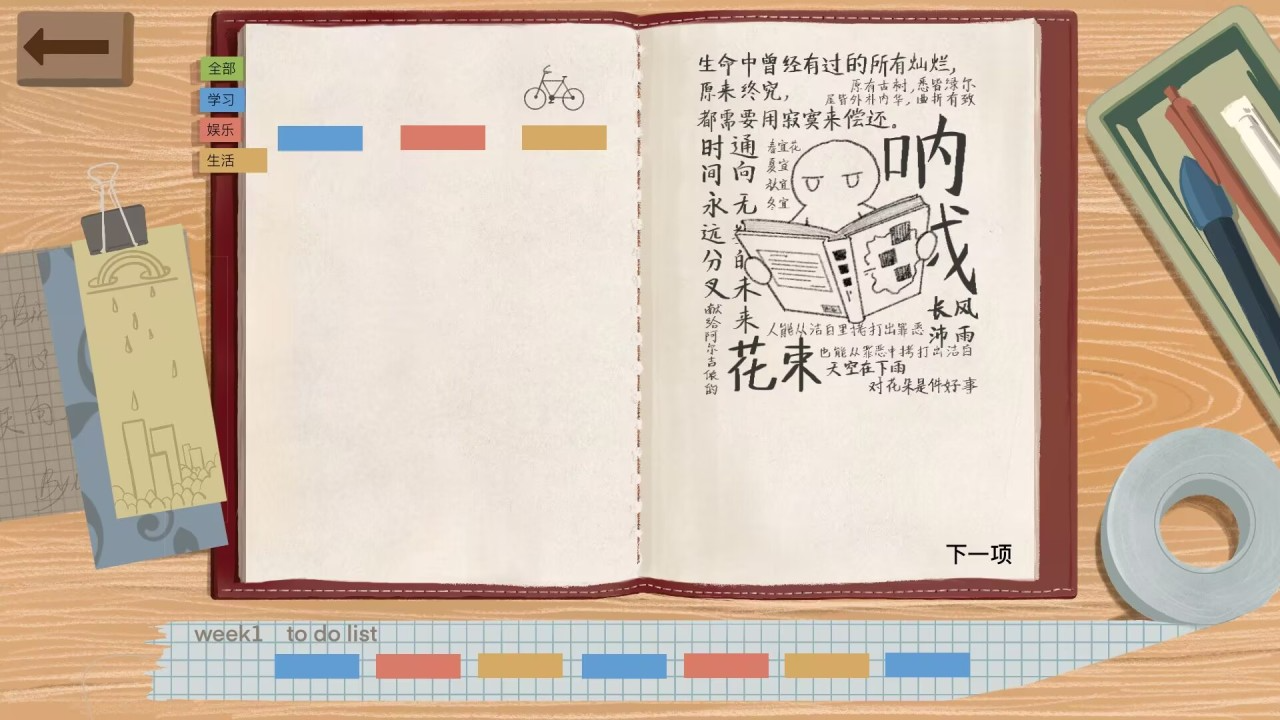 全部
学习
娱乐
生活
生命中曾经有过的所有灿烂,
原来终究,
原有古树,悉皆绿尔
屋皆外朴内华,曲折有致
都需要用寂寞来偿还。
时间永远分叉
通向无数的未来
春宜花
夏宜
秋宜
冬宜
呐
戈
长风
沛雨
献给阿尔吉侬的
花束
人能从洁白里拷打出罪恶
也能从罪恶中拷打出洁白
天空在下雨
对花朵是件好事
下一项
week1 to do list